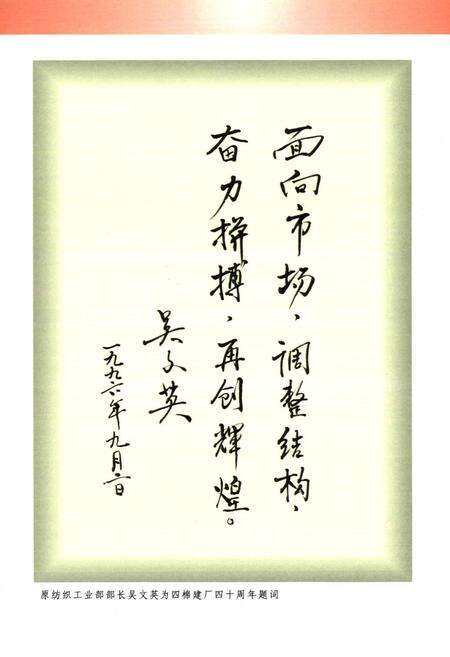 面向市场，调整结构，
奋力拼搏，再创辉煌。
吴文英
一九九六年九月一日
原纺织工业部部长吴文英为四棉建厂四十周年题词